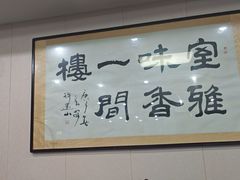 室雅
味香
一間
樓